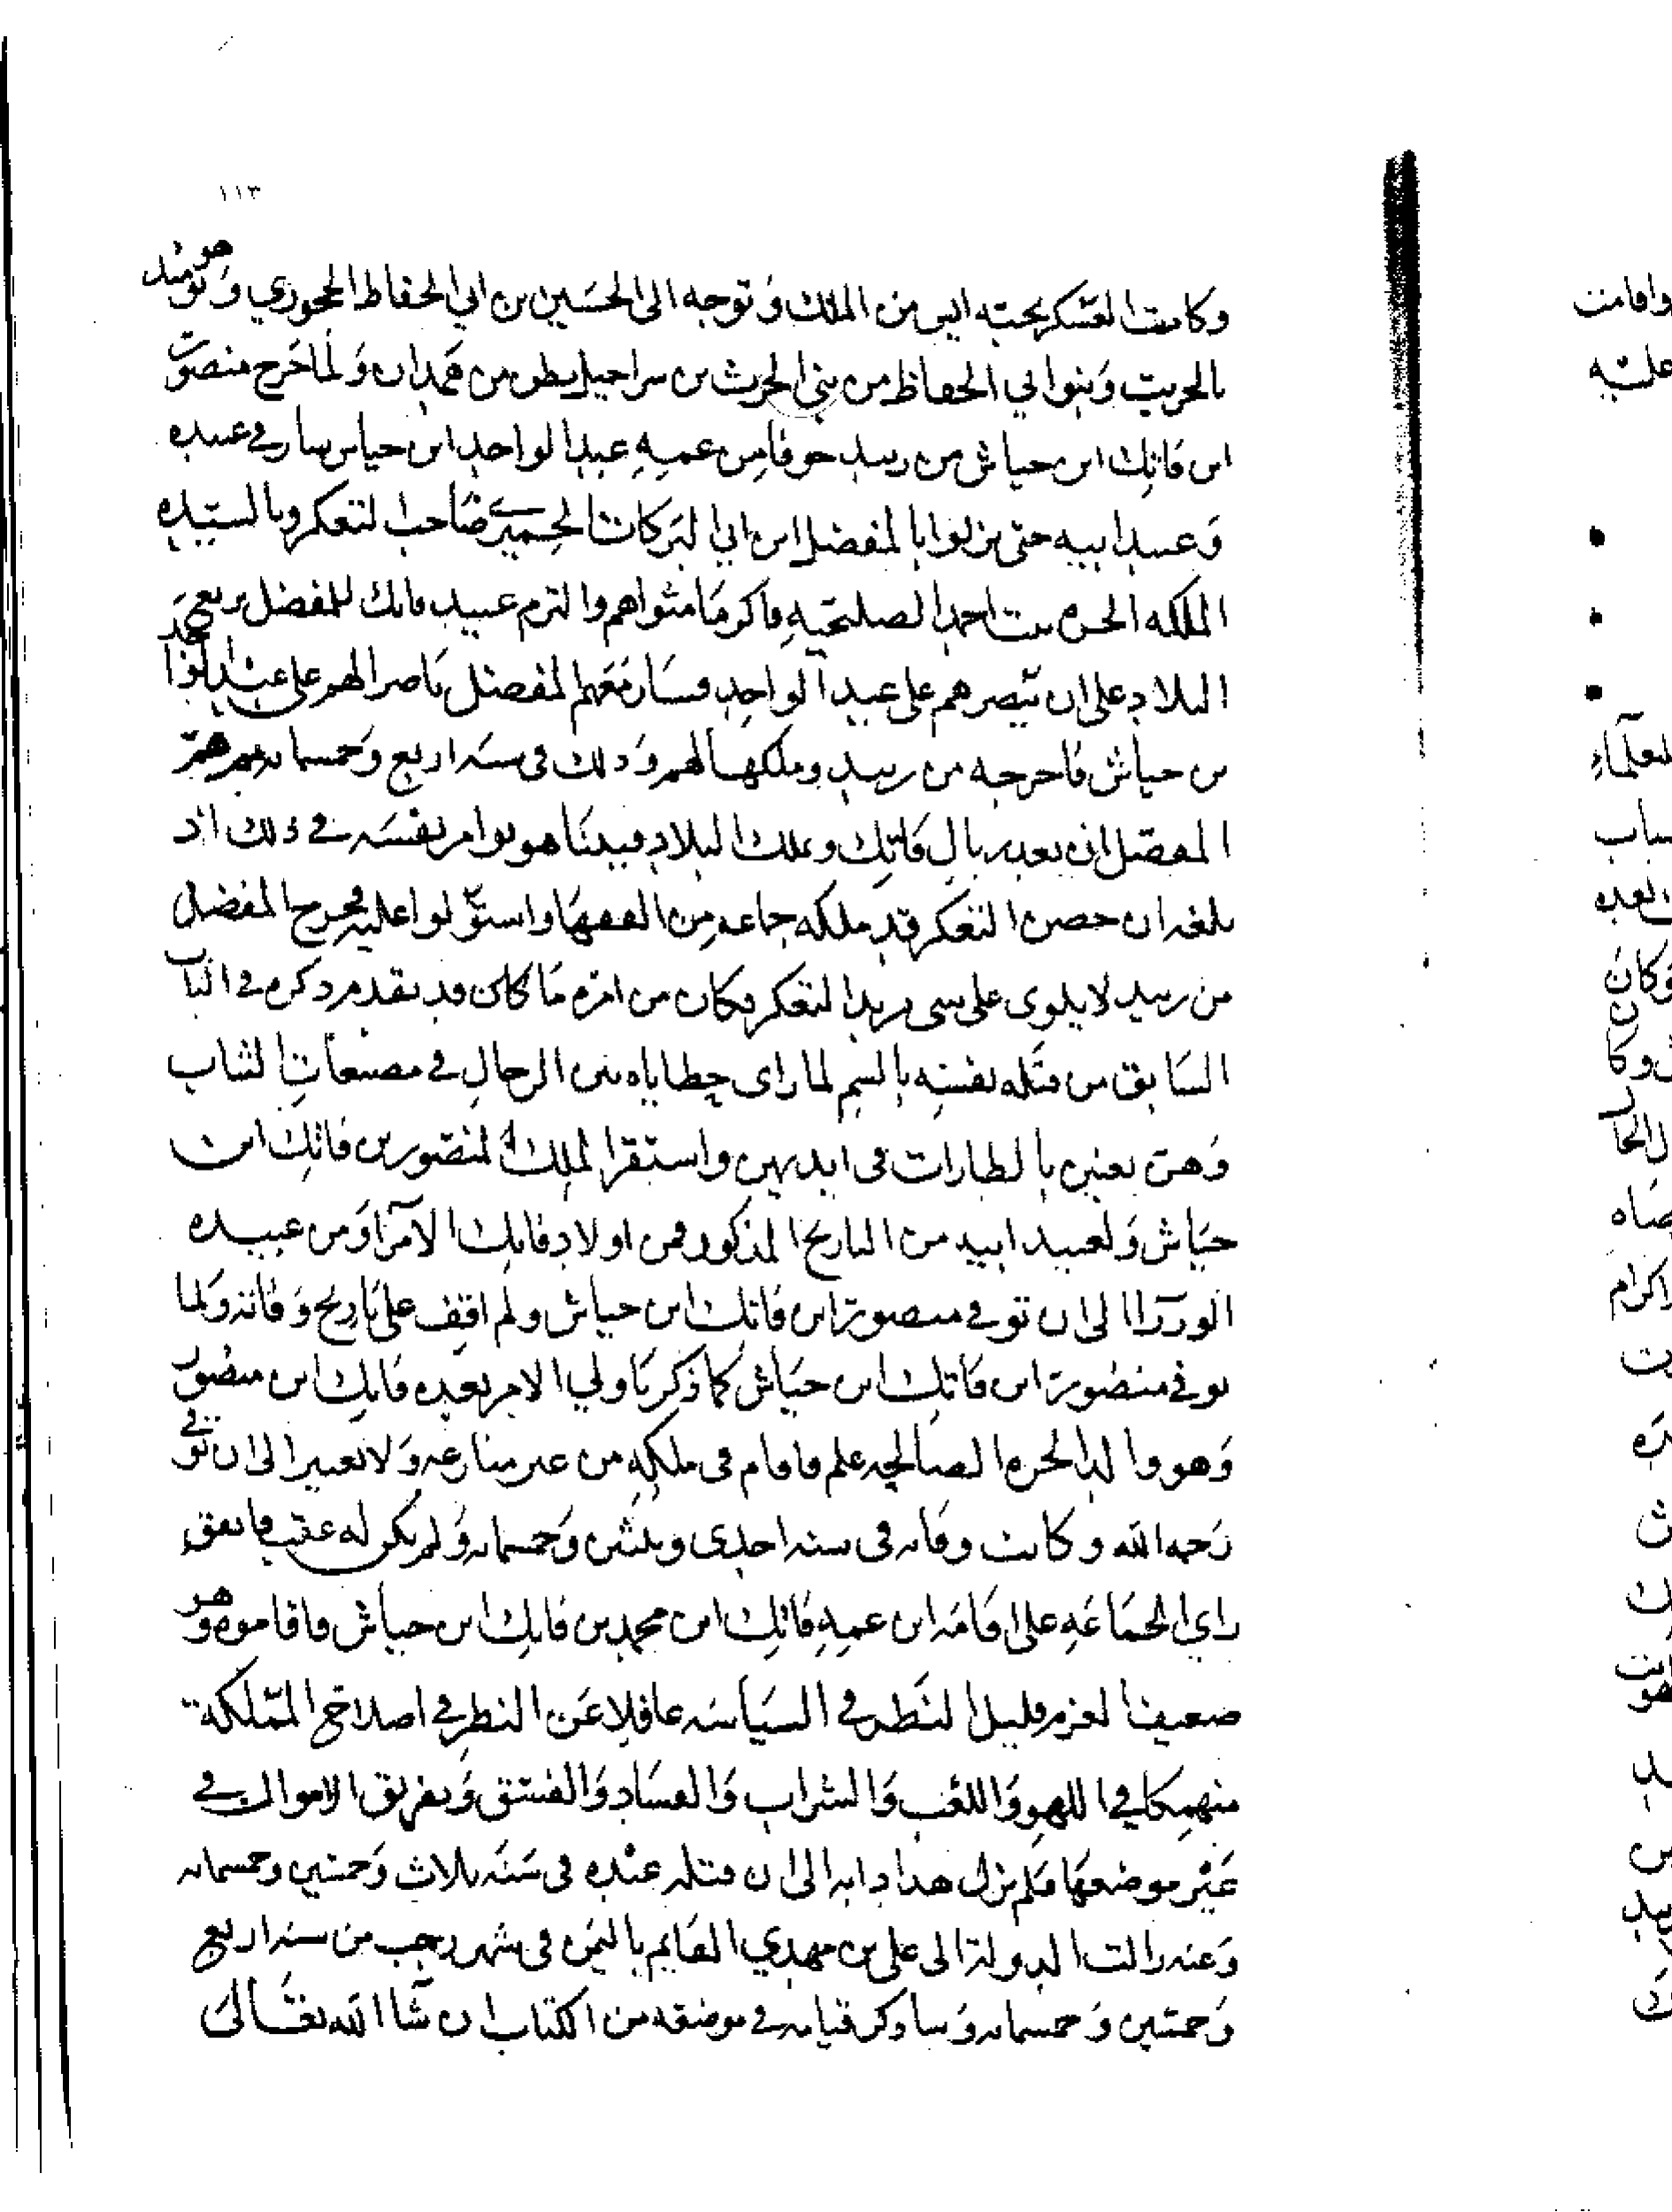 ١١٣
وكانت العسكر تحبه ايس من الملك وتوجه الى الحسين بن ابي الحفاظ الحجوري وهو يومئذ
بالحريب وبنوا ابي الحفاظ من بني الحرث بن شراحيل بطن من همدان ولما خرج منصور
ابن فاتك ابن جياش من زبيد خوفا من عمه عبد الواحد ابن جياش سار في عبيده
وعبيد ابيه حتى نزلوا بالمفضل ابن ابي البركات الحميري صاحب التعكر وبالسيده
الملكه الحره بنت احمد الصليحيه فاكرما مثواهم والتزم عبيد فاتك للمفضل بربع
البلاد على ان ينصرهم على عبد الواحد فسار معهم المفضل ناصرا لهم على عبد الواحد
بن جياش فاخرجه من زبيد وملكها لهم وذلك في سنه اربع وخمسمايه ثم هم
المفضل ان يغدر بال فاتك ويملك البلاد فبينا هو يوامر نفسه في ذلك اذ
بلغه ان حصن التعكر قد ملكه جماعه من الفقها واستولوا عليه فخرج المفضل
من زبيد لا يلوى على شي يريد التعكر فكان من امره ما كان قد تقدم ذكره في الباب
السابق من قتله نفسه بالسم لما راى حظاياه بين الرجال في مصبغات الثياب
وهن يغنين بالطارات في ايديهن واستقر الملك لمنصور بن فاتك ابن
جياش ولعبيد ابيه من التاريخ المذكور فمن اولاد فاتك الامرا ومن عبيده
الوزرا الى ان توفي منصور ابن فاتك ابن جياش ولم اقف على تاريخ وفاته ولما
توفي منصور ابن فاتك ابن جياش كما ذكرنا ولي الامر بعده فاتك ابن منصور
وهو ولد الحره الصالحه علم فاقام في ملكه من غير منازعه ولا تغيير الى ان توفي
رحمه الله وكانت وفاته في سنه احدى وثلثين وخمسمايه ولم يكن له عقب فاتفق
راي الجماعه على اقامه ابن عمه فاتك ابن محمد بن فاتك ابن جياش فاقاموه وهو
ضعيف العزم قليل النظر في السياسه غافلا عن النظر في اصلاح المملكة
منهمكا في اللهو واللعب والشراب والفساد والفسق وتفريق الاموال في
غير موضعها فلم يزل هذا دابه الى ان قتله عبيده في سنه ثلاث وخمسين وخمسمايه
وعنه زالت الدولة الى علي بن مهدي القايم باليمن في شهر رجب من سنه اربع
وخمسين وخمسمايه وساذكر قيامه في موضعه من الكتاب ان شا الله تعالى
واقامت
عليه